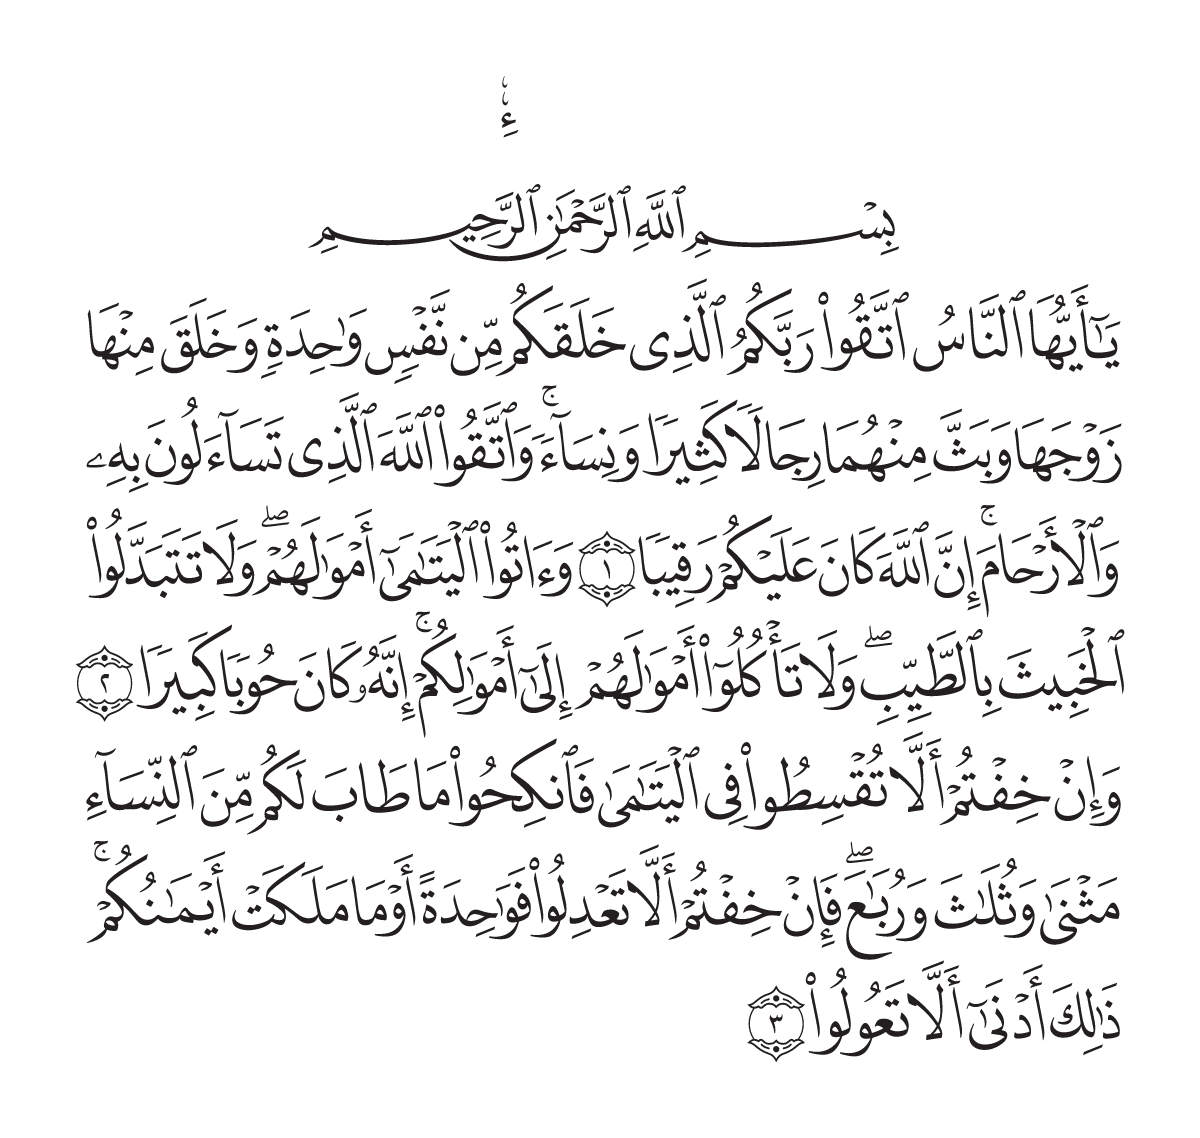 ءِ
بِسۡمِ ٱللَّهِ ٱلرَّحۡمَٰنِ ٱلرَّحِيمِ
يَٰٓأَيُّهَا ٱلنَّاسُ ٱتَّقُواْ رَبَّكُمُ ٱلَّذِى خَلَقَكُم مِّن نَّفۡسٖ وَٰحِدَةٖ وَخَلَقَ مِنۡهَا
زَوۡجَهَا وَبَثَّ مِنۡهُمَا رِجَالٗا كَثِيرٗا وَنِسَآءٗۚ وَٱتَّقُواْ ٱللَّهَ ٱلَّذِى تَسَآءَلُونَ بِهِۦ
وَٱلۡأَرۡحَامَۚ إِنَّ ٱللَّهَ كَانَ عَلَيۡكُمۡ رَقِيبٗا ١ وَءَاتُواْ ٱلۡيَتَٰمَىٰٓ أَمۡوَٰلَهُمۡۖ وَلَا تَتَبَدَّلُواْ
ٱلۡخَبِيثَ بِٱلطَّيِّبِۖ وَلَا تَأۡكُلُوٓاْ أَمۡوَٰلَهُمۡ إِلَىٰٓ أَمۡوَٰلِكُمۡۚ إِنَّهُۥ كَانَ حُوبٗا كَبِيرٗا ٢
وَإِنۡ خِفۡتُمۡ أَلَّا تُقۡسِطُواْ فِى ٱلۡيَتَٰمَىٰ فَٱنكِحُواْ مَا طَابَ لَكُم مِّنَ ٱلنِّسَآءِ
مَثۡنَىٰ وَثُلَٰثَ وَرُبَٰعَۖ فَإِنۡ خِفۡتُمۡ أَلَّا تَعۡدِلُواْ فَوَٰحِدَةً أَوۡ مَا مَلَكَتۡ أَيۡمَٰنُكُمۡۚ
ذَٰلِكَ أَدۡنَىٰٓ أَلَّا تَعُولُواْ ٣